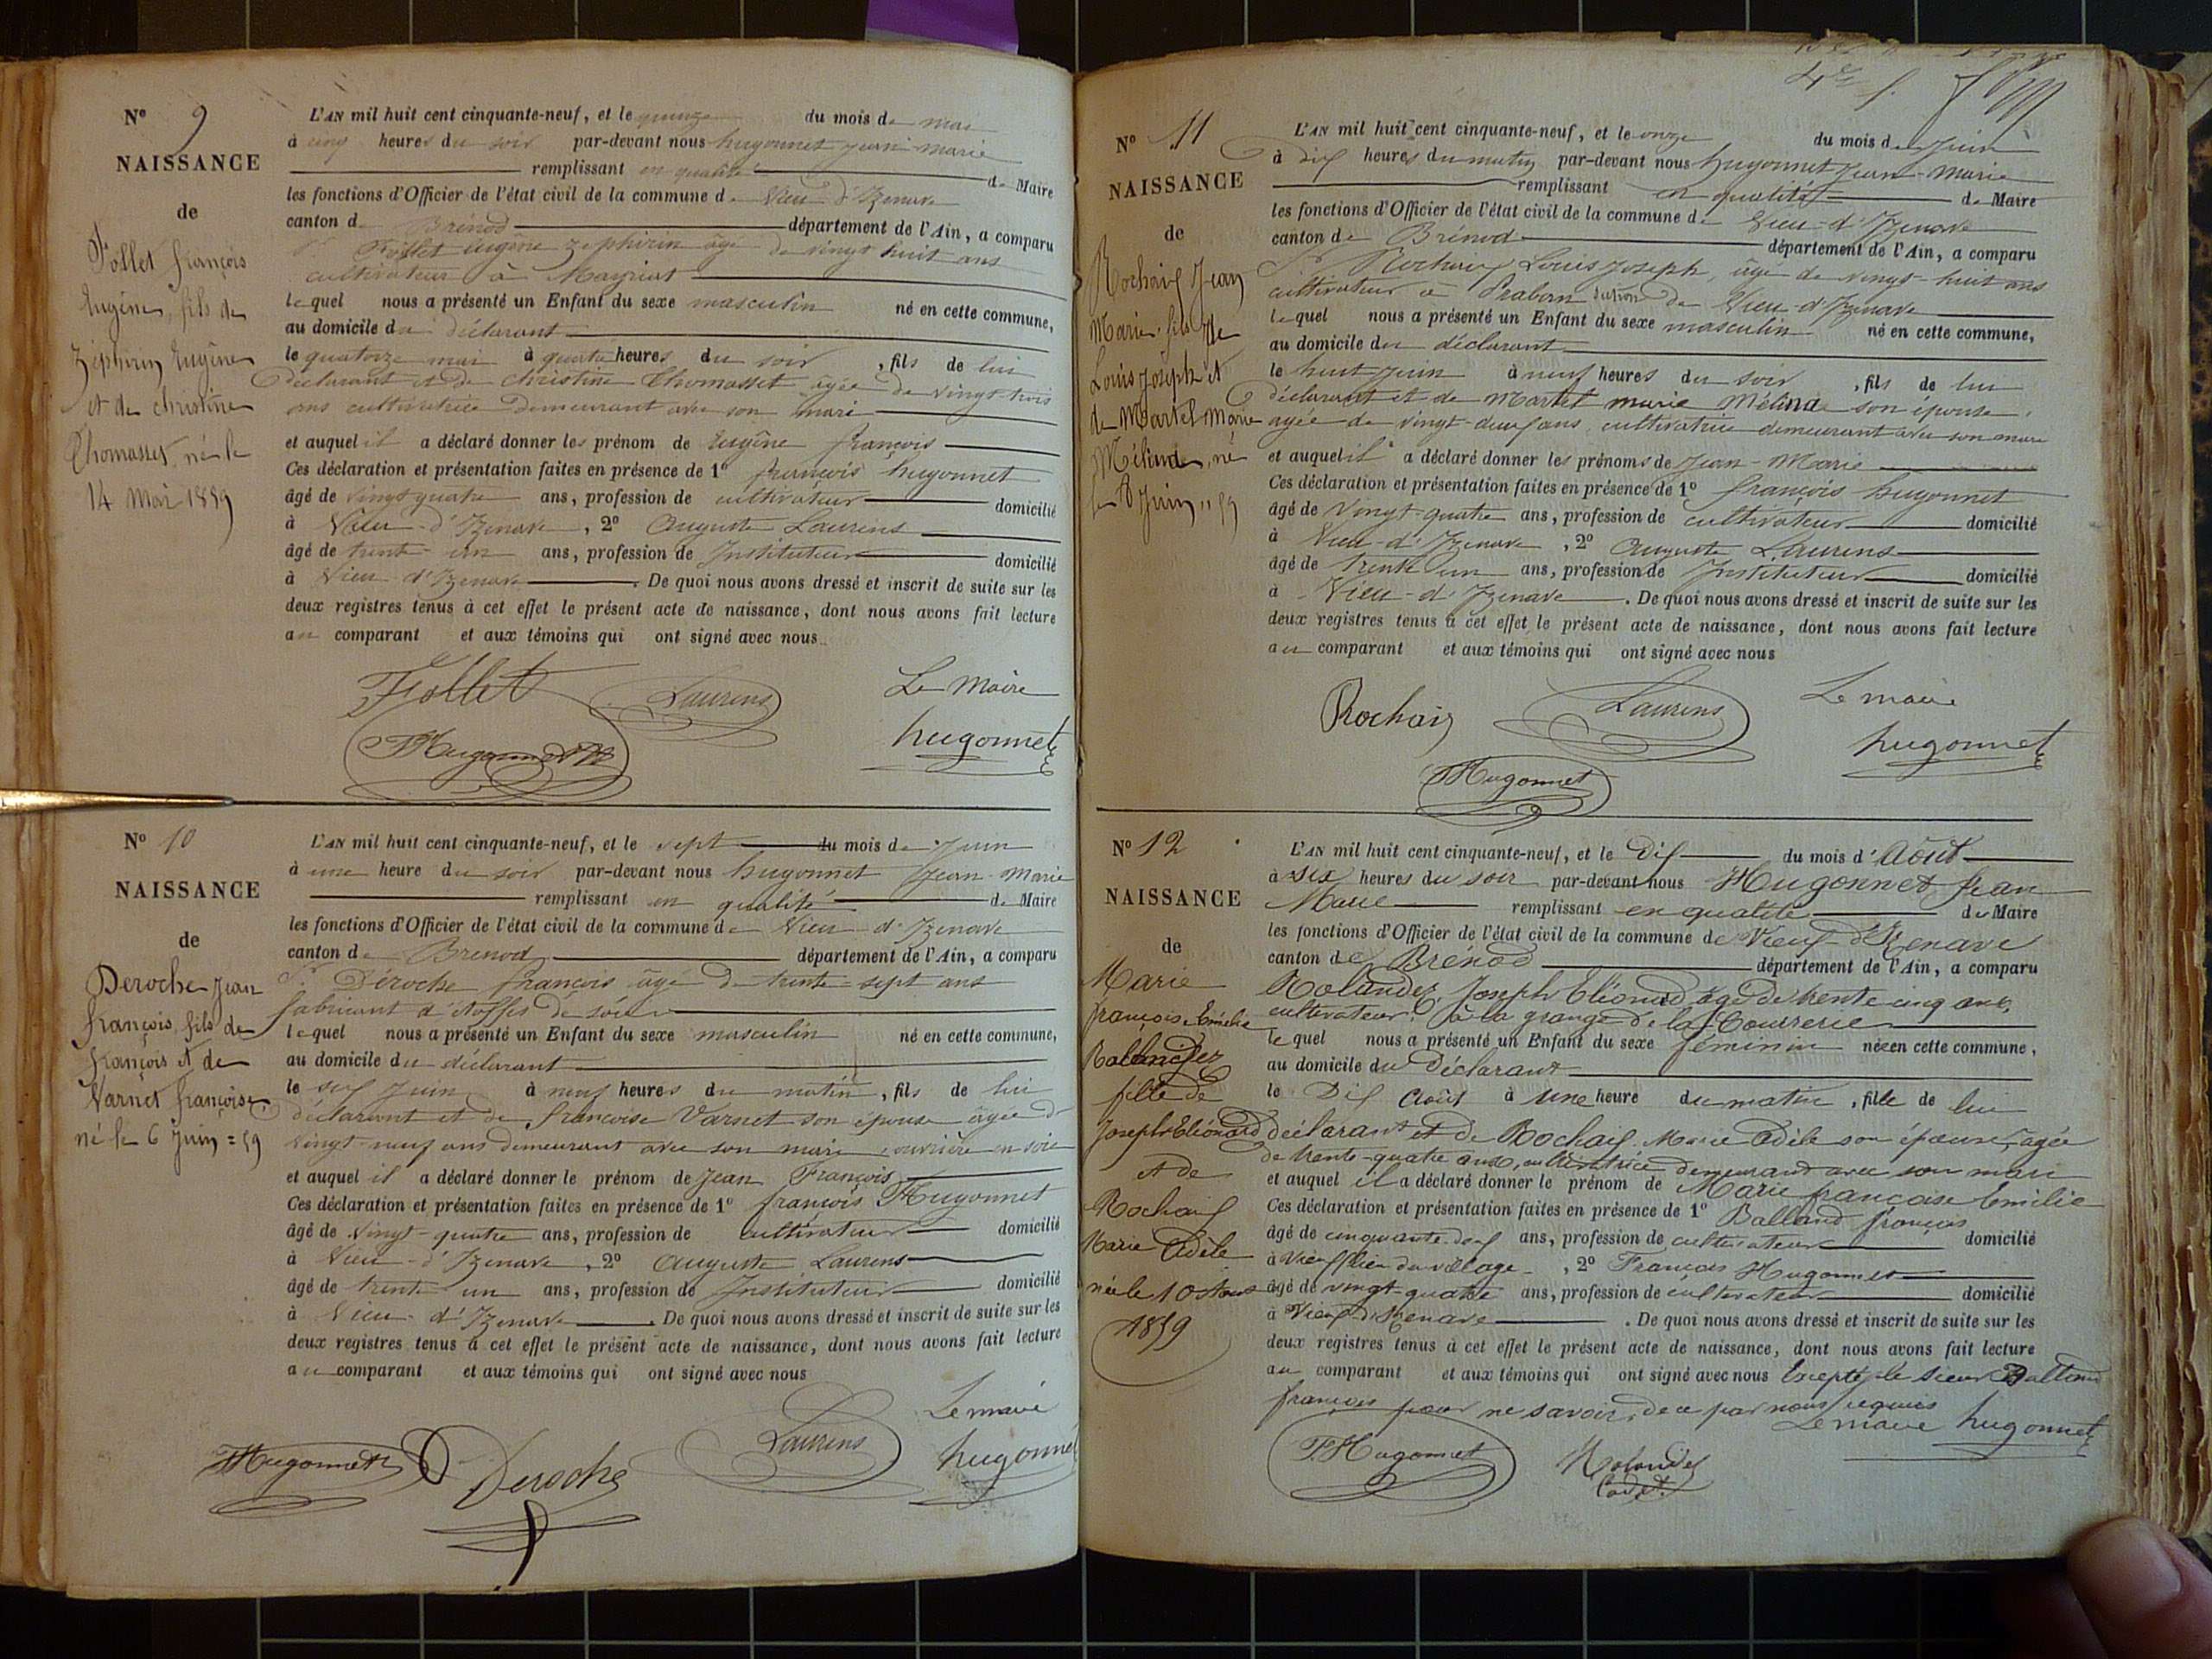 N° 9
NAISSANCE
de
Follet françois
Eugène, fils de
Zéphirin Eugène
et de christine
Thomasset, né le
14 Mai 1859
L'AN mil huit cent cinquante-neuf, et le quinze du mois de mai
à cinq heures du soir par-devant nous hugonnet jean marie
remplissant en qualité de Maire
les fonctions d'Officier de l'état civil de la commune de Vieu d'Izenave
canton de Brénod département de l'Ain, a comparu
Sr Follet Eugène Zéphirin âgé de vingt huit ans
cultivateur à
lequel nous a présenté un Enfant du sexe masculin né en cette commune,
au domicile du déclarant
le quatorze mai à quatre heures du soir, fils de lui
déclarant et de christine Thomasset âgée de vingt trois
ans cultivatrice demeurant avec son mari
et auquel il a déclaré donner les prénom de Eugène françois
Ces déclaration et présentation faites en présence de 1° françois hugonnet
âgé de vingt quatre ans, profession de cultivateur domicilié
à Vieu-d'Izenave, 2° Auguste Laurens
âgé de trente-un ans, profession de Instituteur domicilié
à Vieu-d'Izenave. De quoi nous avons dressé et inscrit de suite sur les
deux registres tenus à cet effet le présent acte de naissance, dont nous avons fait lecture
au comparant et aux témoins qui ont signé avec nous
Follet Laurens Le Maire
Hugonnet hugonnet
N° 10
NAISSANCE
de
Deroche Jean
françois, fils de
françois et de
Varnet françoise,
né le 6 Juin = 59
L'AN mil huit cent cinquante-neuf, et le sept du mois de Juin
à une heure du soir par-devant nous hugonnet Jean-Marie
remplissant en qualité de Maire
les fonctions d'Officier de l'état civil de la commune de Vieu d'Izenave
canton de Brenod département de l'Ain, a comparu
Sr Déroche françois âgé de trente-sept ans
fabricant d'étoffes de soie
lequel nous a présenté un Enfant du sexe masculin né en cette commune,
au domicile du déclarant
le six Juin à neuf heures du matin, fils de lui
déclarant et de françoise Varnet son épouse âgée de
vingt-neuf ans demeurant avec son mari, ouvrière en soie
et auquel il a déclaré donner le prénom de Jean François
Ces déclaration et présentation faites en présence de 1° françois Hugonnet
âgé de vingt-quatre ans, profession de cultivateur domicilié
à Vieu-d'Izenave, 2° Auguste Laurens
âgé de trente un ans, profession de Instituteur domicilié
à Vieu-d'Izenave. De quoi nous avons dressé et inscrit de suite sur les
deux registres tenus à cet effet le présent acte de naissance, dont nous avons fait lecture
au comparant et aux témoins qui ont signé avec nous
Le maire
Hugonnet Deroche Laurens hugonnet
N° 11
NAISSANCE
de
Rochaix Jean
Marie fils de
Louis Joseph et
de Martel Marie
Mélinde, né
le 8 Juin, 59
L'AN mil huit cent cinquante-neuf, et le onze du mois de Juin
à dix heures du matin par-devant nous hugonnet Jean-Marie
remplissant en qualité de Maire
les fonctions d'Officier de l'état civil de la commune de Vieu-d'Izenave
canton de Brénod département de l'Ain, a comparu
Sr Rochaix Louis Joseph, âgé de vingt-huit ans
cultivateur à de Vieu-d'Izenave
lequel nous a présenté un Enfant du sexe masculin né en cette commune,
au domicile du déclarant
le huit Juin à neuf heures du soir, fils de lui
déclarant et de Martel marie Mélinde son épouse,
agée de vingt-deux ans, cultivatrice demeurant avec son mari
et auquel il a déclaré donner les prénoms de Jean-Marie
Ces déclaration et présentation faites en présence de 1° françois hugonnet
âgé de vingt-quatre ans, profession de cultivateur domicilié
à Vieu-d'Izenave, 2° Auguste Laurens
âgé de trente un ans, profession de Instituteur domicilié
à Vieu-d'Izenave. De quoi nous avons dressé et inscrit de suite sur les
deux registres tenus à cet effet le présent acte de naissance, dont nous avons fait lecture
au comparant et aux témoins qui ont signé avec nous
Rochaix Laurens Le maire
hugonnet
Hugonnet
N° 12
NAISSANCE
de
Marie
françoise Emélie
Rollandez
fille de
Joseph Eléonard
et de
Rochaix
Marie Adèle
née le 10 Aout
1859
L'AN mil huit cent cinquante-neuf, et le Dix du mois d'Août
à six heures du soir par-devant nous Hugonnet Jean
Marie remplissant en qualité de Maire
les fonctions d'Officier de l'état civil de la commune de Vieux d'Izenave
canton de Brénod département de l'Ain, a comparu
Rolandez Joseph Eléonard âgé de trente cinq ans,
cultivateur, à la grange de la Courrerie
lequel nous a présenté un Enfant du sexe féminin née en cette commune,
au domicile du Déclarant
le Dix Août à une heure du matin, fille de lui
déclarant et de Rochaix Marie Adèle son épouse, agée
de trente-quatre ans, cultivatrice demeurant avec son mari
et auquel il a déclaré donner le prénom de Marie françoise Emilie
Ces déclaration et présentation faites en présence de 1° Balland françois
âgé de cinquante-deux ans, profession de cultivateur domicilié
à Vieux lieu du village, 2° François Hugonnet
âgé de vingt-quatre ans, profession de cultivateur domicilié
à Vieux d'Izenave. De quoi nous avons dressé et inscrit de suite sur les
deux registres tenus à cet effet le présent acte de naissance, dont nous avons fait lecture
au comparant et aux témoins qui ont signé avec nous Excepté le sieur Balland
françois pour ne savoir, de ce par nous requis
Le maire hugonnet
F. Hugonnet Rolandez
Cadet